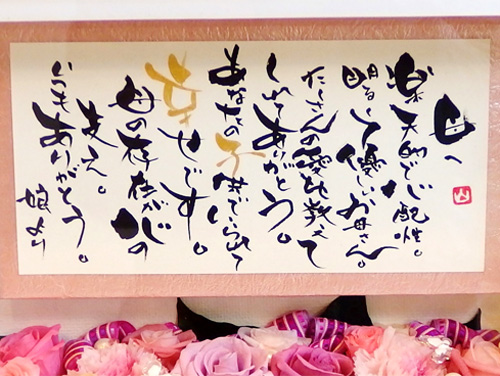 母へ
楽天的で心配性。
明るくて優しいお母さん。
たくさんの愛を教えて
くれてありがとう。
あなたの子供でいられて
幸せです。
母の存在が心の
支え。
いつもありがとう。
娘より